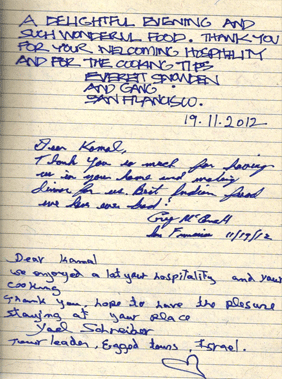 A DELIGHTFUL EVENING AND
SUCH WONDERFUL FOOD. THANK YOU
FOR YOUR WELCOMING HOSPITALITY
AND FOR THE COOKING TIPS
EVERETT SNOWDEN
AND GANG.
SAN FRANCISCO.
19.11.2012
Dear Kamal,
Thank you so much for having
us in your home and making
dinner for us. Best Indian food
we have ever had!
San Francisco 11/19/12
Dear Kamal
we enjoyed a lot your hospitality and your
cooking
Thank you, hope to have the plesure
staying at your place
Yael Schreiber
Tour leader, Egged tours, Israel.